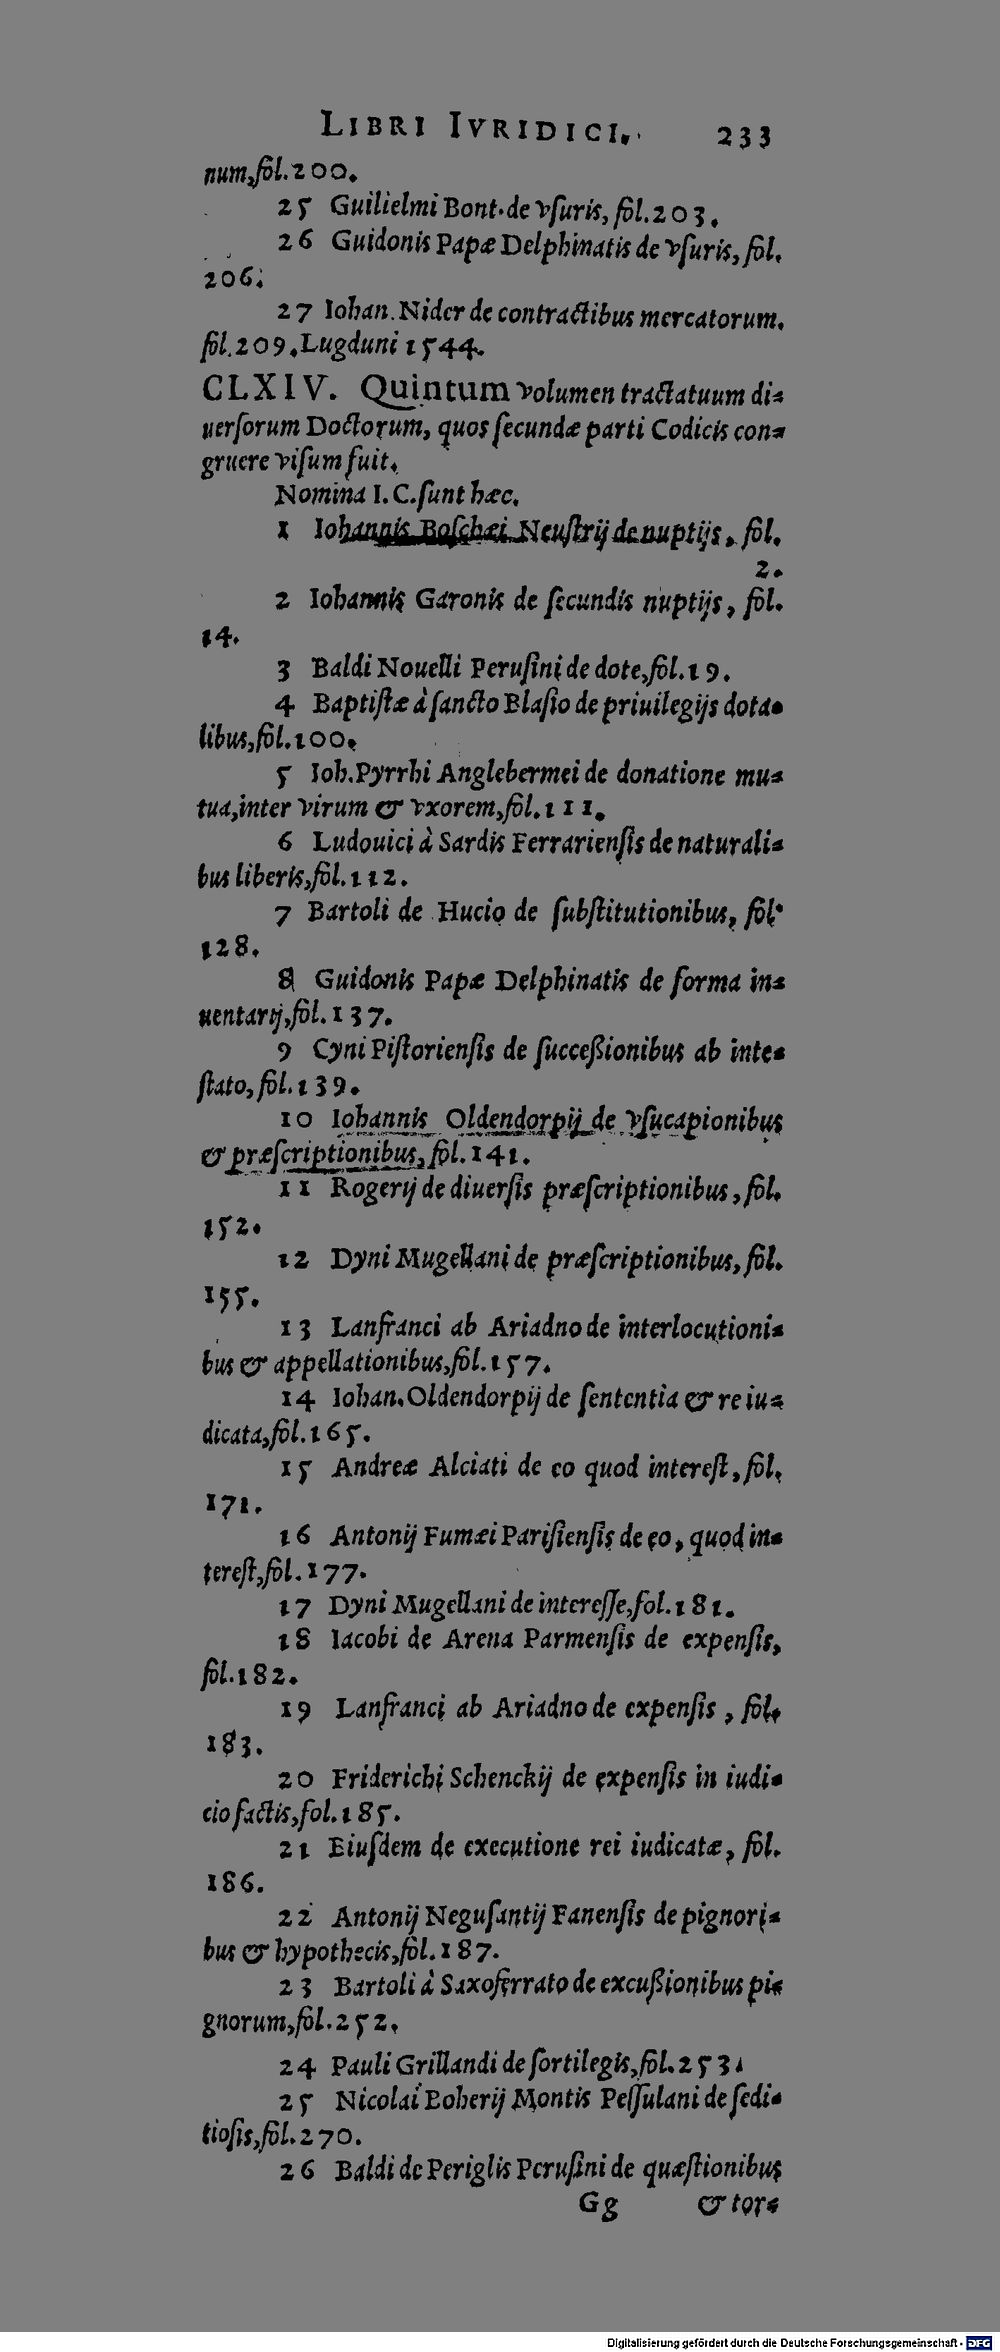 LIBRI IVRIDICI. 233
num, fol. 200.
25 Guilielmi Bont. de vſuris, fol. 203.
26 Guidonis Papæ Delphinatis de vſuris, fol.
206.
27 Iohan. Nider de contractibus mercatorum.
fol. 209. Lugduni 1544.
CLXIV. Quintum volumen tractatuum di=
uerſorum Doctorum, quos ſecundæ parti Codicis con=
gruere viſum fuit.
Nomina I. C. ſunt hæc.
1 Iohannis Boſchæi Neuſtrij de nuptijs, fol.
2.
2 Iohannis Garonis de ſecundis nuptijs, fol.
14.
3 Baldi Nouelli Peruſini de dote, fol. 19.
4 Baptiſtæ à ſancto Blaſio de priuilegijs dota=
libus, fol. 100.
5 Ioh. Pyrrhi Anglebermei de donatione mu=
tua, inter virum & vxorem, fol. 111.
6 Ludouici à Sardis Ferrarienſis de naturali=
bus liberis, fol. 112.
7 Bartoli de Hucio de ſubſtitutionibus, fol.
128.
8 Guidonis Papæ Delphinatis de forma in=
uentarij, fol. 137.
9 Cyni Piſtorienſis de ſucceßionibus ab inte=
ſtato, fol. 139.
10 Iohannis Oldendorpij de vſucapionibus
& præſcriptionibus, fol. 141.
11 Rogerij de diuerſis præſcriptionibus, fol.
152.
12 Dyni Mugellani de præſcriptionibus, fol.
155.
13 Lanfranci ab Ariadno de interlocutioni=
bus & appellationibus, fol. 157.
14 Iohan. Oldendorpij de ſententia & re iu=
dicata, fol. 165.
15 Andreæ Alciati de eo quod intereſt, fol.
171.
16 Antonij Fumæi Pariſienſis de eo, quod in=
tereſt, fol. 177.
17 Dyni Mugellani de intereſſe, fol. 181.
18 Iacobi de Arena Parmenſis de expenſis,
fol. 182.
19 Lanfranci ab Ariadno de expenſis, fol.
183.
20 Friderichi Schenckij de expenſis in iudi=
cio factis, fol. 185.
21 Eiuſdem de executione rei iudicatæ, fol.
186.
22 Antonij Neguſantij Fanenſis de pignori=
bus & hypothecis, fol. 187.
23 Bartoli à Saxoferrato de excußionibus pi=
gnorum, fol. 252.
24 Pauli Grillandi de ſortilegis, fol. 253.
25 Nicolai Boherij Montis Peſſulani de ſedi=
tioſis, fol. 270.
26 Baldi de Periglis Peruſini de quæſtionibus
Gg & tor=
Digitalisierung gefördert durch die Deutsche Forschungsgemeinschaft - DFG